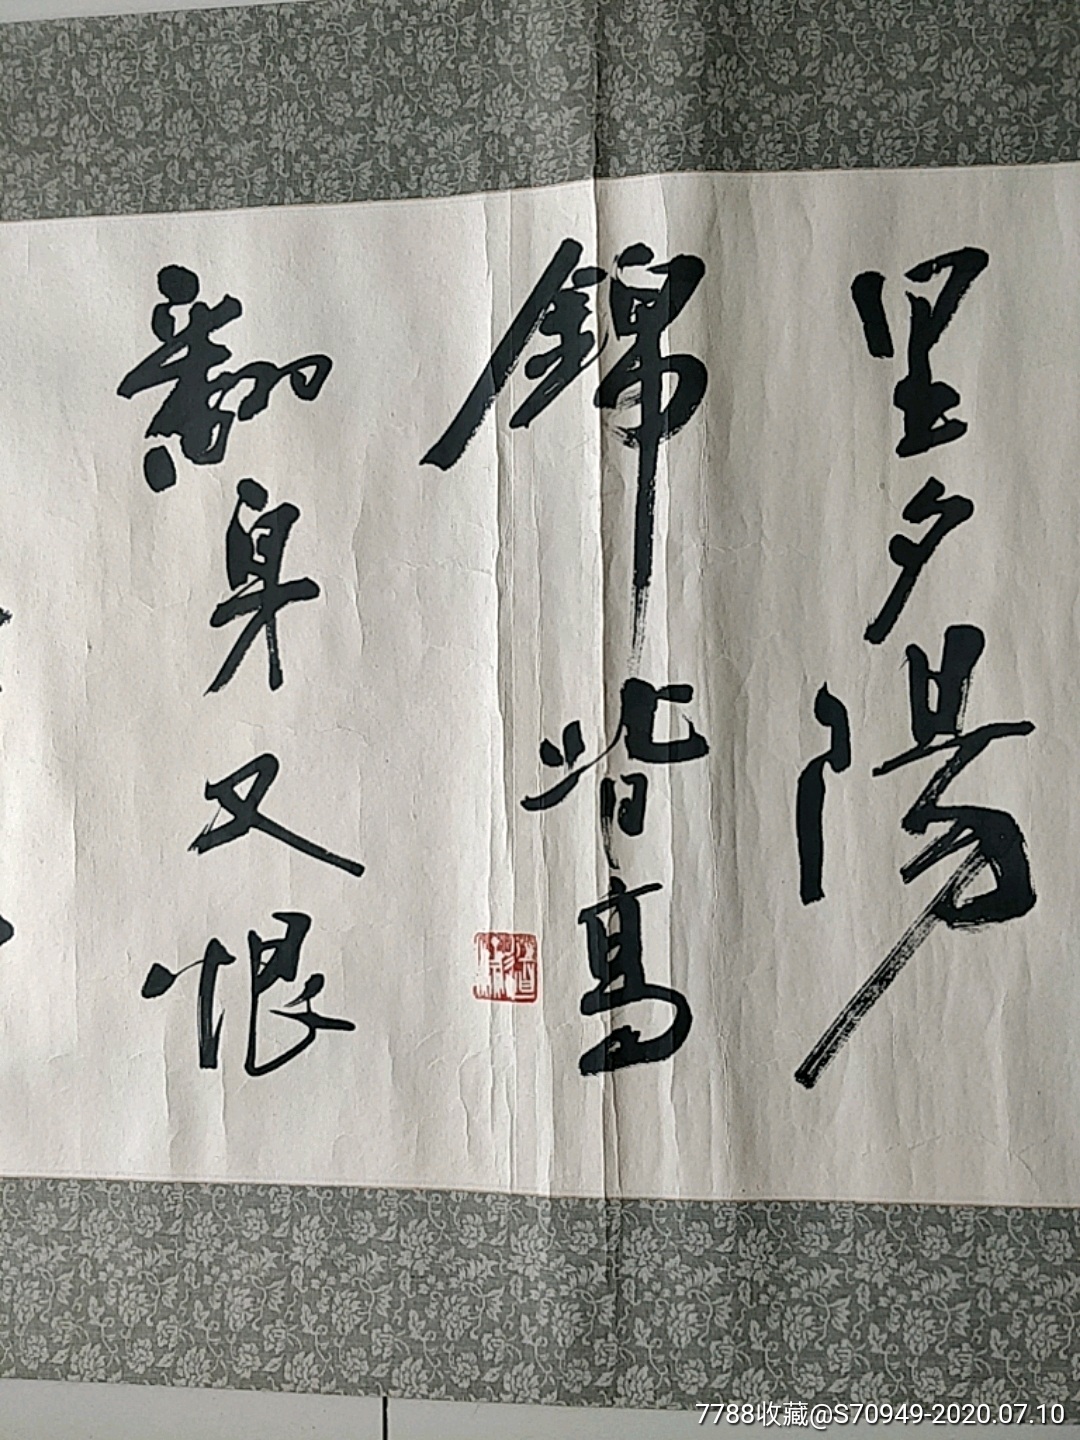 里夕陽
錦背高
翻身又恨
7788收藏@S70949-2020.07.10